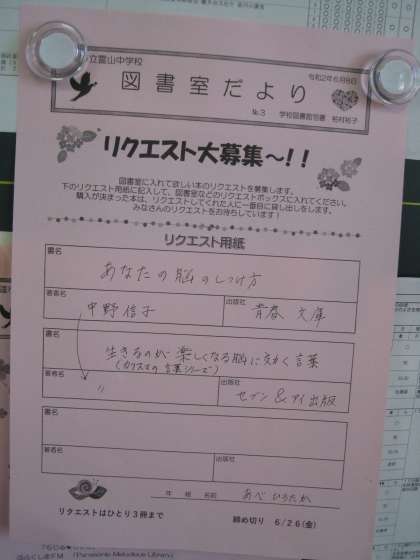 立霊山中学校
図書室だより
令和2年6月8日
No.3 学校図書館司書
リクエスト大募集~!!
図書室に入れて欲しい本のリクエストを募集します。
下のリクエスト用紙に記入して、図書室などのリクエストボックスに入れてください。
購入が決まった本は、リクエストしてくれた人に一番目に貸し出しをします。
みなさんのリクエストをお待ちしています!
リクエスト用紙
書名
あなたの脳のしつけ方
著者名
中野信子
出版社
青春文庫
書名
生きるのが楽しくなる脳に効く言葉
(カリスマの言葉シリーズ)
著者名
〃
出版社
セブン&アイ出版
書名
著者名
出版社
年 組 名前 あべ ひろたか
リクエストはひとり3冊まで
締め切り 6/26(金)